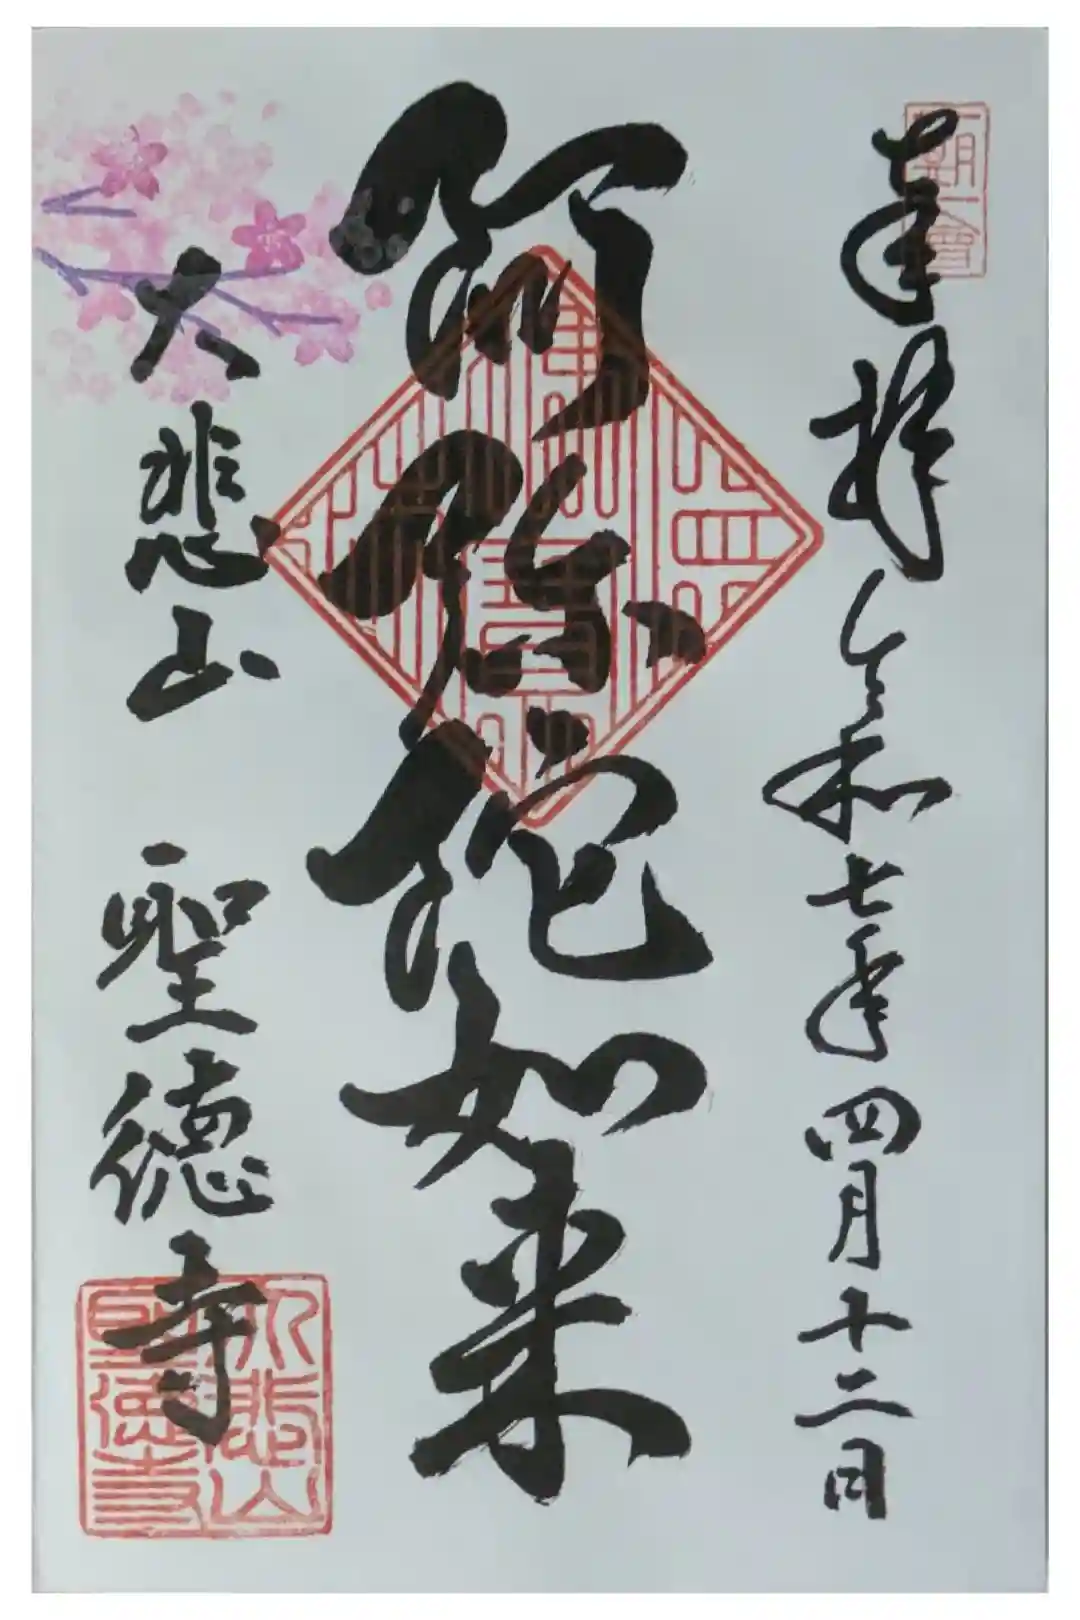 奉拝 令和七年四月十二日
阿弥陀如来
大悲山 聖徳寺
一期一會
大悲山聖徳寺